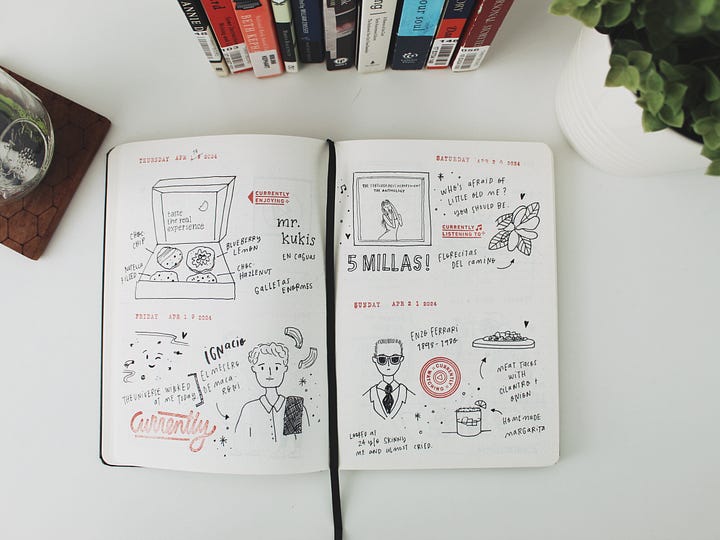 BETH KEPH
your soul
THURSDAY APR 18 2024
CURRENTLY
ENJOYING
taste
the real
experience
mr.
kukis
EN CAGUAS
CHOC
CHIP
BLUEBERRY
LEMON
NUTELLA
FILLED
CHOC-
HAZELNUT
GALLETAS
ENORMES
FRIDAY APR 19 2024
IGNACIO
EL MESERO
DE MACA-
RONI
THE UNIVERSE WINKED
AT ME TODAY
Currently
SATURDAY APR 20 2024
THE TORTURED POETS DEPARTMENT
THE ANTHOLOGY
WHO'S AFRAID OF
LITTLE OLD ME?
YOU SHOULD BE.
CURRENTLY
LISTENING TO
FLORECITAS
DEL CAMINO
5 MILLAS!
SUNDAY APR 21 2024
ENZO FERRARI
1898-1988
CURRENTLY
WATCHING
MEAT TACOS
WITH
CILANTRO +
ONION
HOMEMADE
MARGARITA
LOOKED AT
24 y/o SKINNY
ME AND ALMOST CRIED.